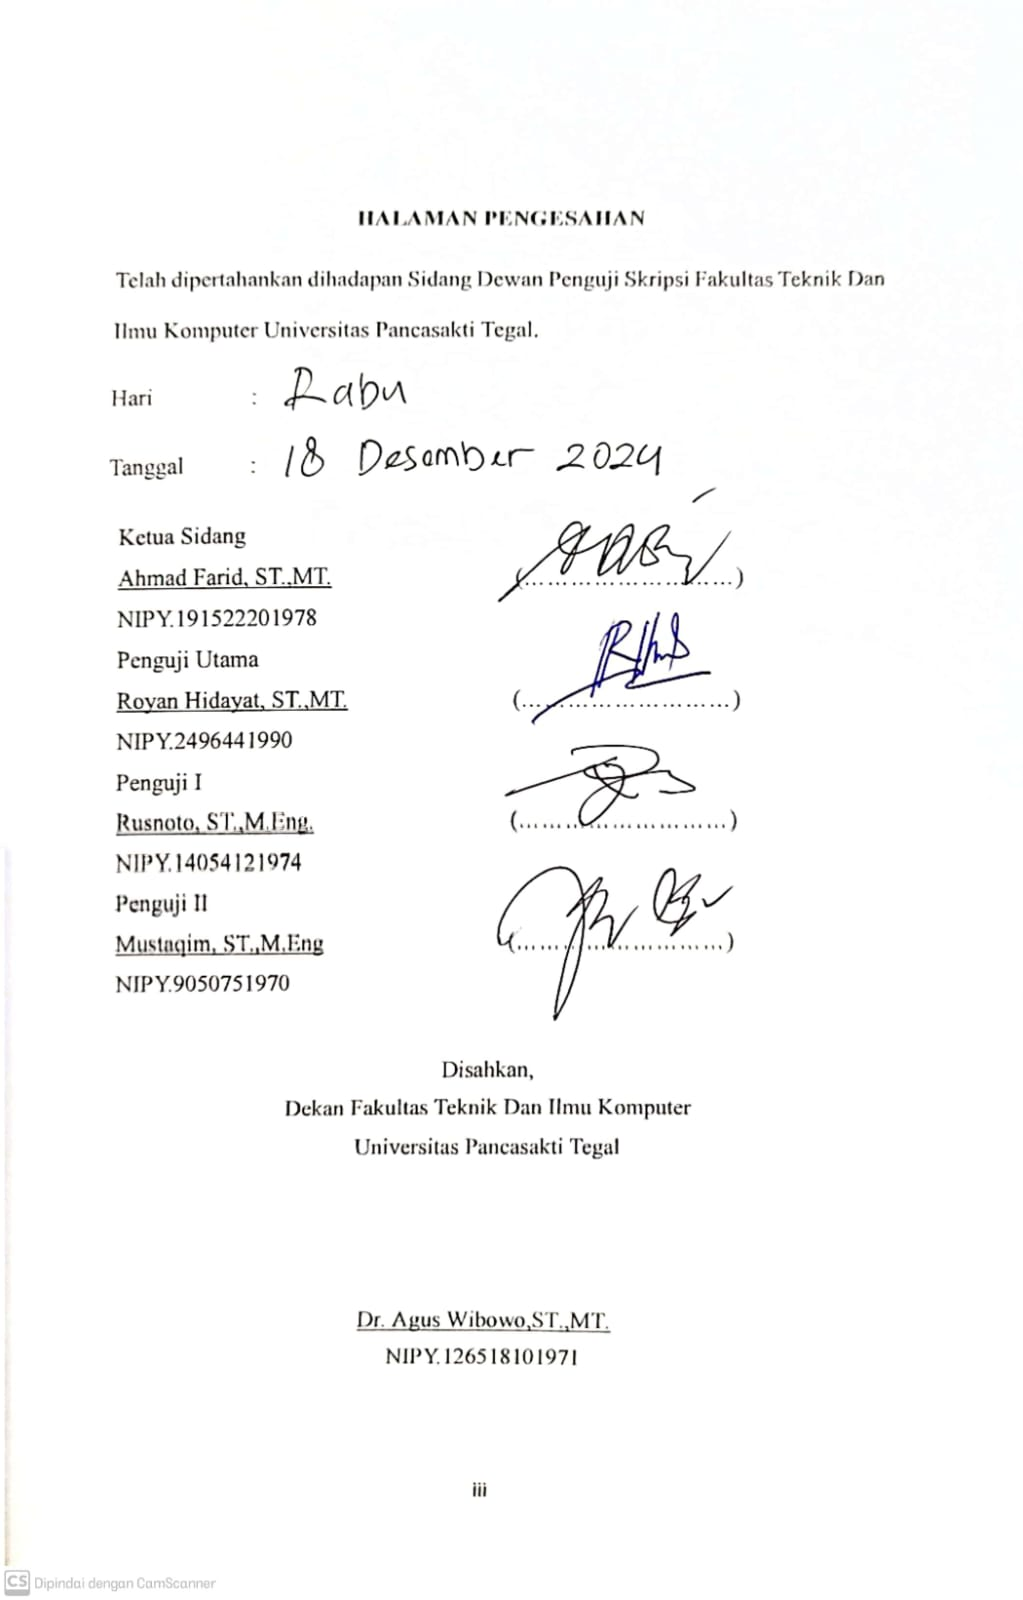 HALAMAN PENGESAHAN
Telah dipertahankan dihadapan Sidang Dewan Penguji Skripsi Fakultas Teknik Dan
Ilmu Komputer Universitas Pancasakti Tegal.
Hari : Rabu
Tanggal : 18 Desember 2024
Ketua Sidang
Ahmad Farid, ST.,MT. (..............................)
NIPY.191522201978
Penguji Utama
Royan Hidayat, ST.,MT. (..............................)
NIPY.2496441990
Penguji I
Rusnoto, ST.,M.Eng. (..............................)
NIPY.14054121974
Penguji II
Mustaqim, ST.,M.Eng (..............................)
NIPY.9050751970
Disahkan,
Dekan Fakultas Teknik Dan Ilmu Komputer
Universitas Pancasakti Tegal
Dr. Agus Wibowo,ST.,MT.
NIPY.126518101971
iii
CS Dipindai dengan CamScanner